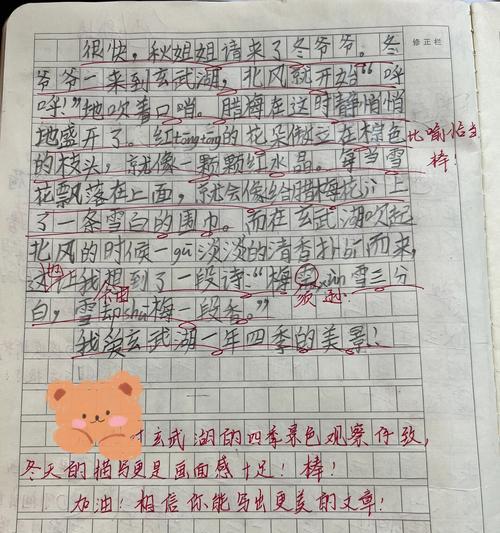 修正栏
很快，秋姐姐请来了冬爷爷。冬
爷爷一来到玄武湖，北风就开始“呼
呼！”地吹着口哨。腊梅在这时静悄悄
地盛开了。红tōngtōng的花朵伫立在棕色
比喻恰当
的枝头，就像一颗颗红水晶。每当雪
棒！
花飘落在上面，就会像给腊梅花 上
了一条雪白的围巾。而在玄武湖吹起
北风的时候一gǔ淡淡的清香扑bí而来，
我想到了一段诗：“梅 xùn雪三分
须 逊
白，雪却shū梅一段香。”
我爱玄武湖一年四季的美景！
玄武湖的四季景色观察仔致，
冬天的描写更是画面感十足！棒！
加油！相信你能写出更美的文章！